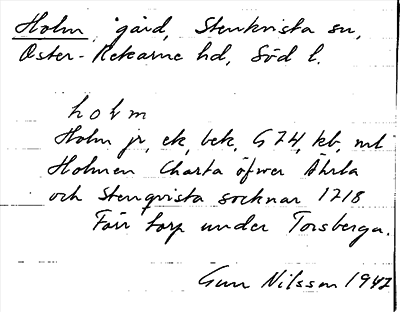 Holm, gård, Stenkvista sn,
Öster-Rekarne hd, Söd l.
holm
Holm jr, ek, bek, G74, kb, ml
Holmen Charta öfwer Åhrla
och Stenqvista socknar 1718
Förr torp under Torsberga.
Gun Nilsson 1947